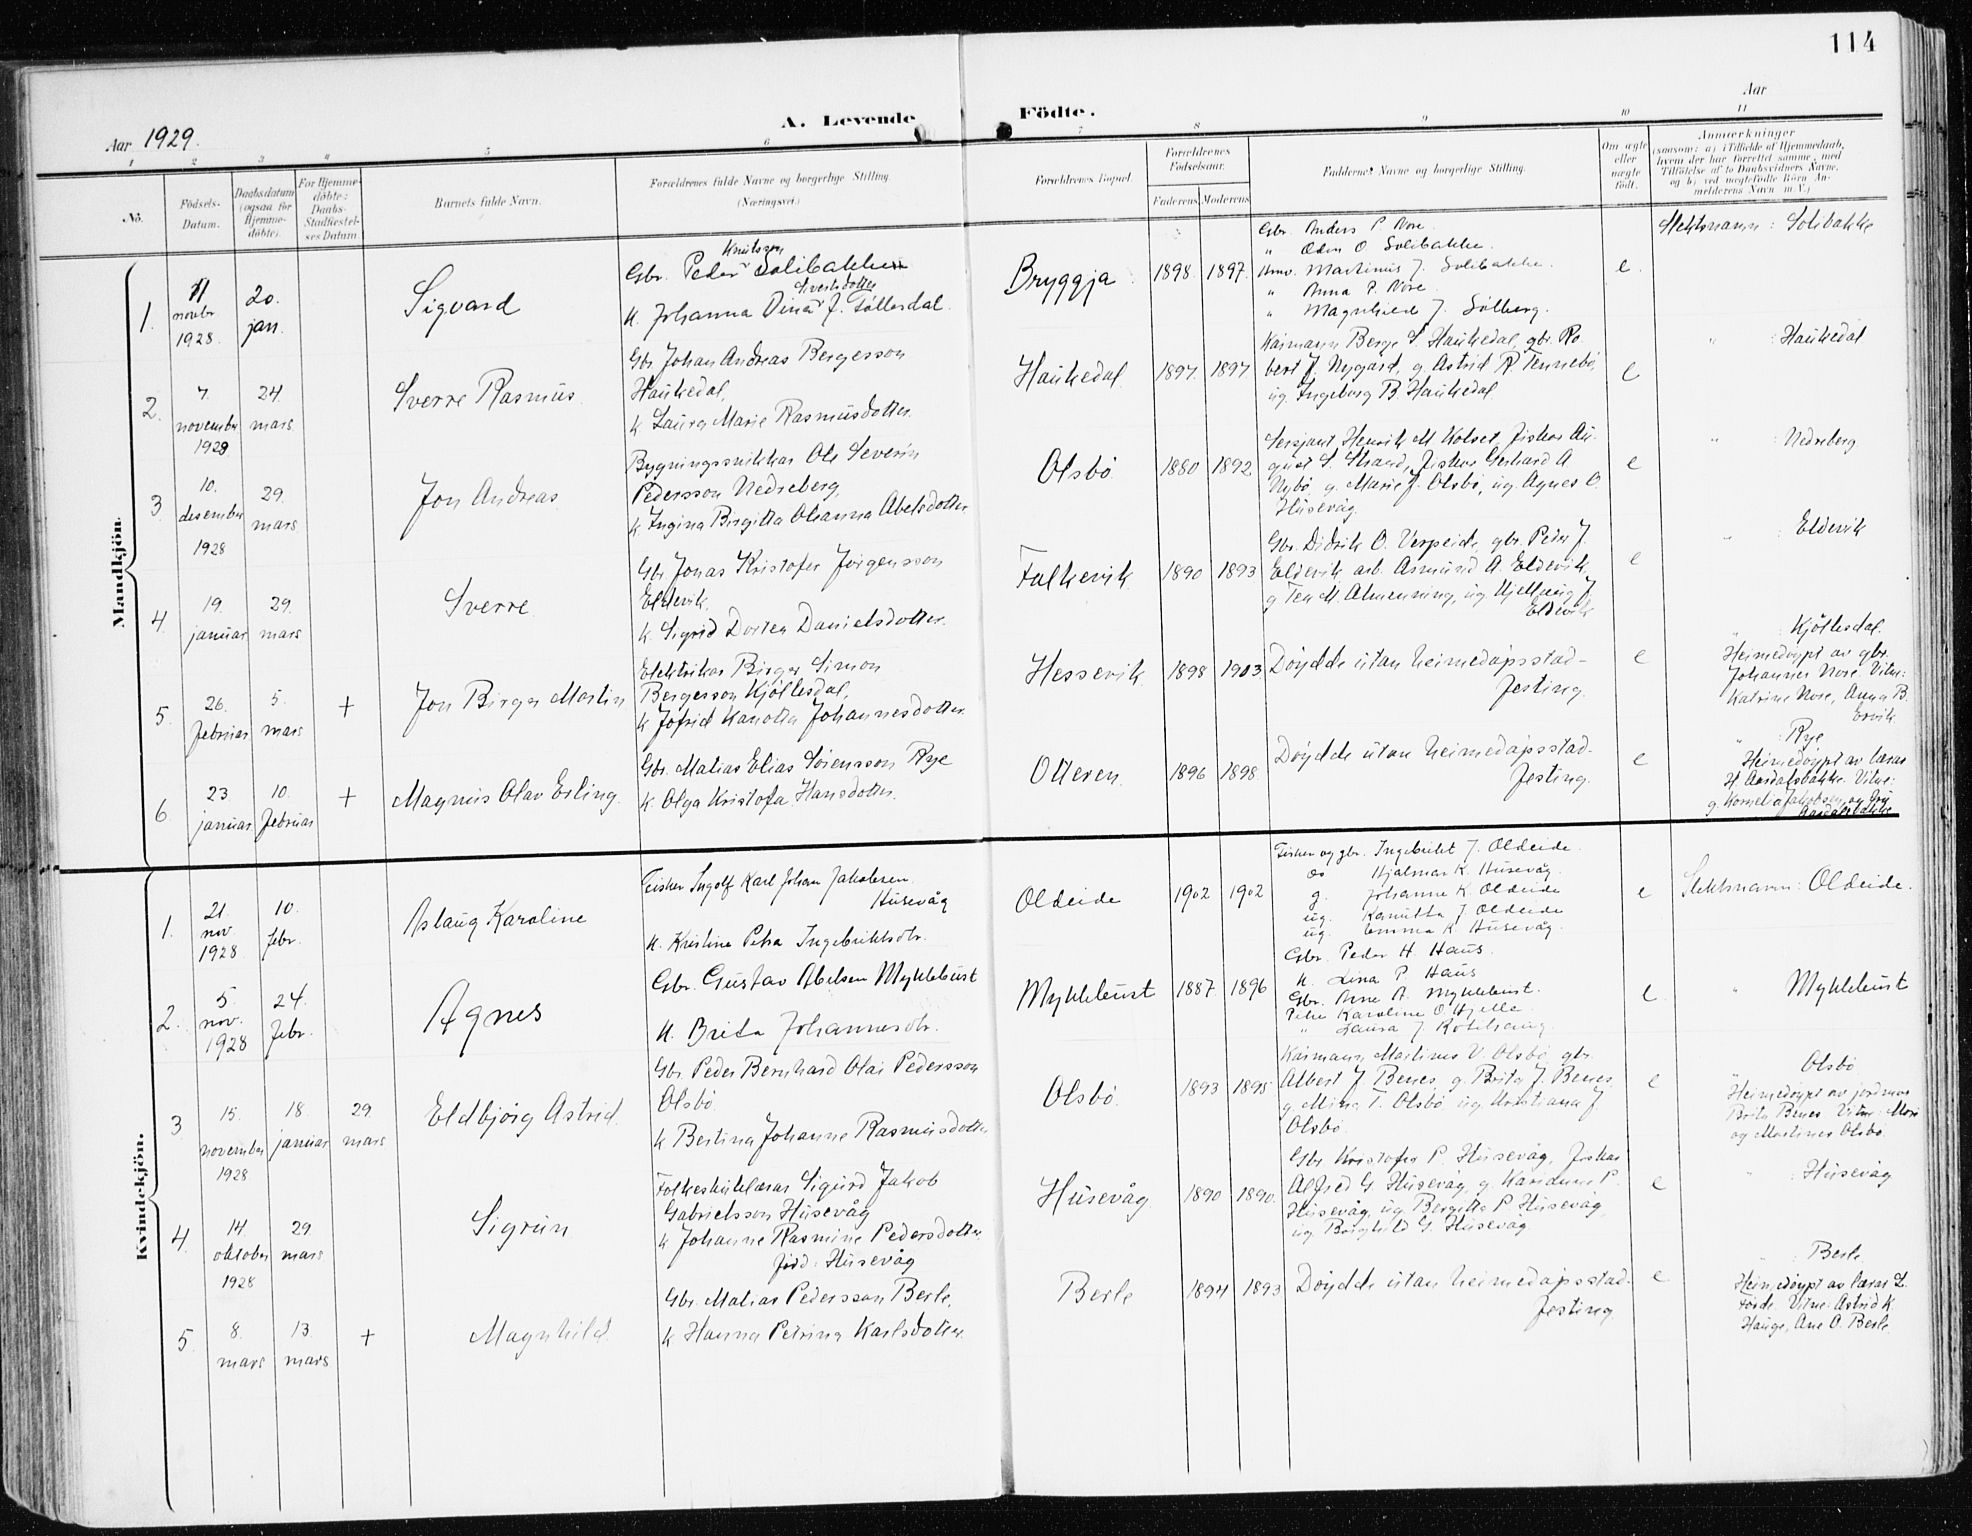 114
Aar 1929.
A. Levende
Födte.
Aar
1 2 3 4 5 6 7 8 9 10 11
No.
Födsels-Datum.
Daabsdatum (ogsaa for Hjemme-döbte).
For Hjemme-döbte: Daabs-Stadfæstel-ses Datum
Barnets fulde Navn.
Forældrenes fulde Navne og borgerlige Stilling.
(Næringsvei.)
Forældrenes Bopæl.
Forældrenes Födselsaar.
Faderens Moderens
Faddernes Navne og borgerlige Stilling.
Om ægte eller uægte födt.
Anmærkninger
(saasom: a) i Tilfælde af Hjemmedaab,
hvem der har forrettet samme, med
Tilföielse af to Daabsvidners Navne,
og b) ved uægtefödte Börn An-
melderens Navn m. V.)
Mandkjön.
1. 11 novbr 1928. 20. jan. Sigvard
Gbr. Peder Knutsson Solibakken
K. Johanna Dina Sivertsdotter J.Føllesdal.
Bryggja 1898. 1897.
Gbr. Anders P. Nore.
" Oden O Solibakke.
Hmv. Martinus J. Solibakke.
" Anna P. Nore.
" Magnhild J. Solberg.
e.
Slektsnamn: Solibakke
2. 7. november 1928 24. mars Sverre Rasmus
Gbr. Johan Andreas Bergesson
Haukedal,
k Laura Marie Rasmusdotter.
Haukedal. 1897. 1897.
Kaimann Berge S. Haukedal, gbr. Ro-
bert J. Nygård, g. Astrid R Tennebø,
ug. Ingeborg B Haukedal
e
" : Haukedal
3. 10. desember 1928 29. mars Jon Andreas.
Bygningssnikkar Ole Severin
Pedersson Nedreberg,
k Ingina Birgitta Oleanna Abelsdotter
Olsbö. 1880 1892
Sersjant Henrik M Kolset, fiskar Au-
gust S. Strand, fiskar Gerhard A
Nybø, g. Marie J. Olsbö, ug. Agnes O.
Husevåg.
e
" : Nedreberg
4. 19. januar 29. mars Sverre.
Gbr Jonas Kristofer Jørgensson
Eldevik,
k Sigrid Dortea Danielsdotter.
Falkevik 1890 1893
Gbr. Didrik O. Verpeide, gbr. Peder J.
Eldevik, arb. Asmund A. Eldevik,
g Tea M. Almenning, ug. Hjellaug J.
Eldevik
e
" : Eldevik
5. 26. februar 5. mars + Jon Birger Martin
Elektrikar Birger Simon
Bergesson Kjöllesdal,
k Jofrid Kanotta Johannesdotter.
Hessevik 1898 1903
Døydde utan heimedåpsstad-
festing.
e
" : Kjöllesdal.
Heimedøypt av gbr.
Johannes Nore. Vitne:
Katrine Nore, Anna B.
Ervik.
6. 23. januar 10. februar + Magnus Olav Erling.
Gbr. Matias Elias Sørensson Rye
k. Olga Kristofa Hansdotter.
Otteren. 1896 1898.
Døydde utan heimedåpsstad-
festing.
e
" : Rye
Heimedøypt av lærar
H. Aardalsbakke. Vitne:
g. Kornelia Jakobsen og
Aardalsbakke
Kvindekjön.
1. 21. nov. 1928 10. febr. Aslaug Karoline
Fisker Ingolf Karl Johan Jakobsen
Husevåg
K. Kristine Petra Ingebriktsdtr.
Oldeide 1902 1902
Fisker og gbr. Ingebrikt J. Oldeide.
do Hjalmar K. Husevåg.
g. Johanne K. Oldeide
ug. Kanutta J Oldeide
ug. Emma K. Husevåg.
e
Slektsnavn: Oldeide.
2. 5. nov. 1928 24. febr. Agnes
Gbr. Gustav Abelsen Myklebust
K. Brita Johannesdtr.
Myklebust 1887. 1896
Gbr. Peder H. Haus.
K. Lina P. Haus
Gbr. Arne A. Myklebust.
Pike Karoline O Hjelle.
" Laura J Rotihaug.
e.
" Myklebust
3 15. november 1928 18. januar 29. mars Eldbjørg Astrid.
Gbr Peder Bernhard Olai Pedersson
Olsbö.
k Bertina Johanne Rasmusdotter
Olsbö. 1893 1895
Kaimann Martinus V. Olsbø, gbr.
Albert J. Benes, g. Brita J. Benes,
g Mina T. Olsbö, ug Kristiana J
Olsbö.
e
" Olsbö
Heimedøypt av jordmor
Brita Benes. Vitne:
og Martinus Olsbö.
4. 14. oktober 1928 29. mars Sigrun
Folkeskulelærar Sigurd Jakob
Gabrielsson Husevåg
k Johanne Rasmine Pedersdotter
født: Husevåg
Husevåg 1890 1890.
Gbr Kristofer P. Husevåg, fiskar
Alfred G Husevåg, g. P.
Husevåg, ug. Bergitte P Husevåg,
ug Borghild G. Husevåg
e
" : Husevåg
5 8. mars 13. mars + Magnhild
Gbr. Matias Pedersson Berle,
k Hanna Petrina Karlsdotter
Berle 1894 1893
Døydde utan heimedåpsstad-
festing.
e
" : Berle
Heimedøypt av lærar L.
Förde. Vitne: Astrid K.
Hauge, Ane O. Berle.